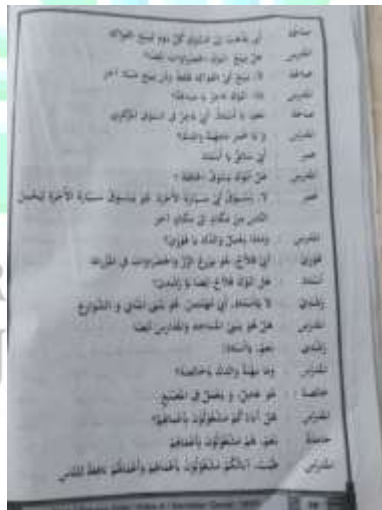 صادقة : أبي يذهب إلى السوق كل يوم ليبيع الفواكه
المدرس : هل يبيع أبوك الخضراوات أيضا؟
صادقة : لا، يبيع أبي الفواكه فقط ولن يبيع شيئا آخر
المدرس : إذا، أبوك تاجر يا صادقة؟
صادقة : نعم، يا أستاذ، أبي تاجر في السوق المركزي
المدرس : و يا عمر مامهنة والدك؟
عمر : أبي سائق يا أستاذ
المدرس : هل أبوك يسوق الحافلة؟
عمر : لا، يسوق أبي سيارة الأجرة. هو يسوق سيارة الأجرة ليحمل
الناس من مكان إلى مكان آخر
المدرس : وماذا يعمل والدك يا فوزي؟
فوزي : أبي فلاح، هو يزرع الرز والخضراوات في المزرعة
أستاذ : هل أبوك فلاح أيضا يا رشدي؟
رشدي : لا ياأستاذ، أبي مهندس. هو يبني المباني و الشوارع
المدرس : هل هو يبني المساجد والمدارس أيضا؟
رشدي : نعم، ياأستاذ!
المدرس : وما مهنة والدك ياخالصة؟
خالصة : هو عامل، و يعمل في المصنع
المدرس : هل آباءكم مشغولون بأعمالهم؟
جماعة : نعم، هم مشغولون بأعمالهم
المدرس : طيب، آبائكم مشغولون بأعمالهم وأعمالهم نافعة للناس